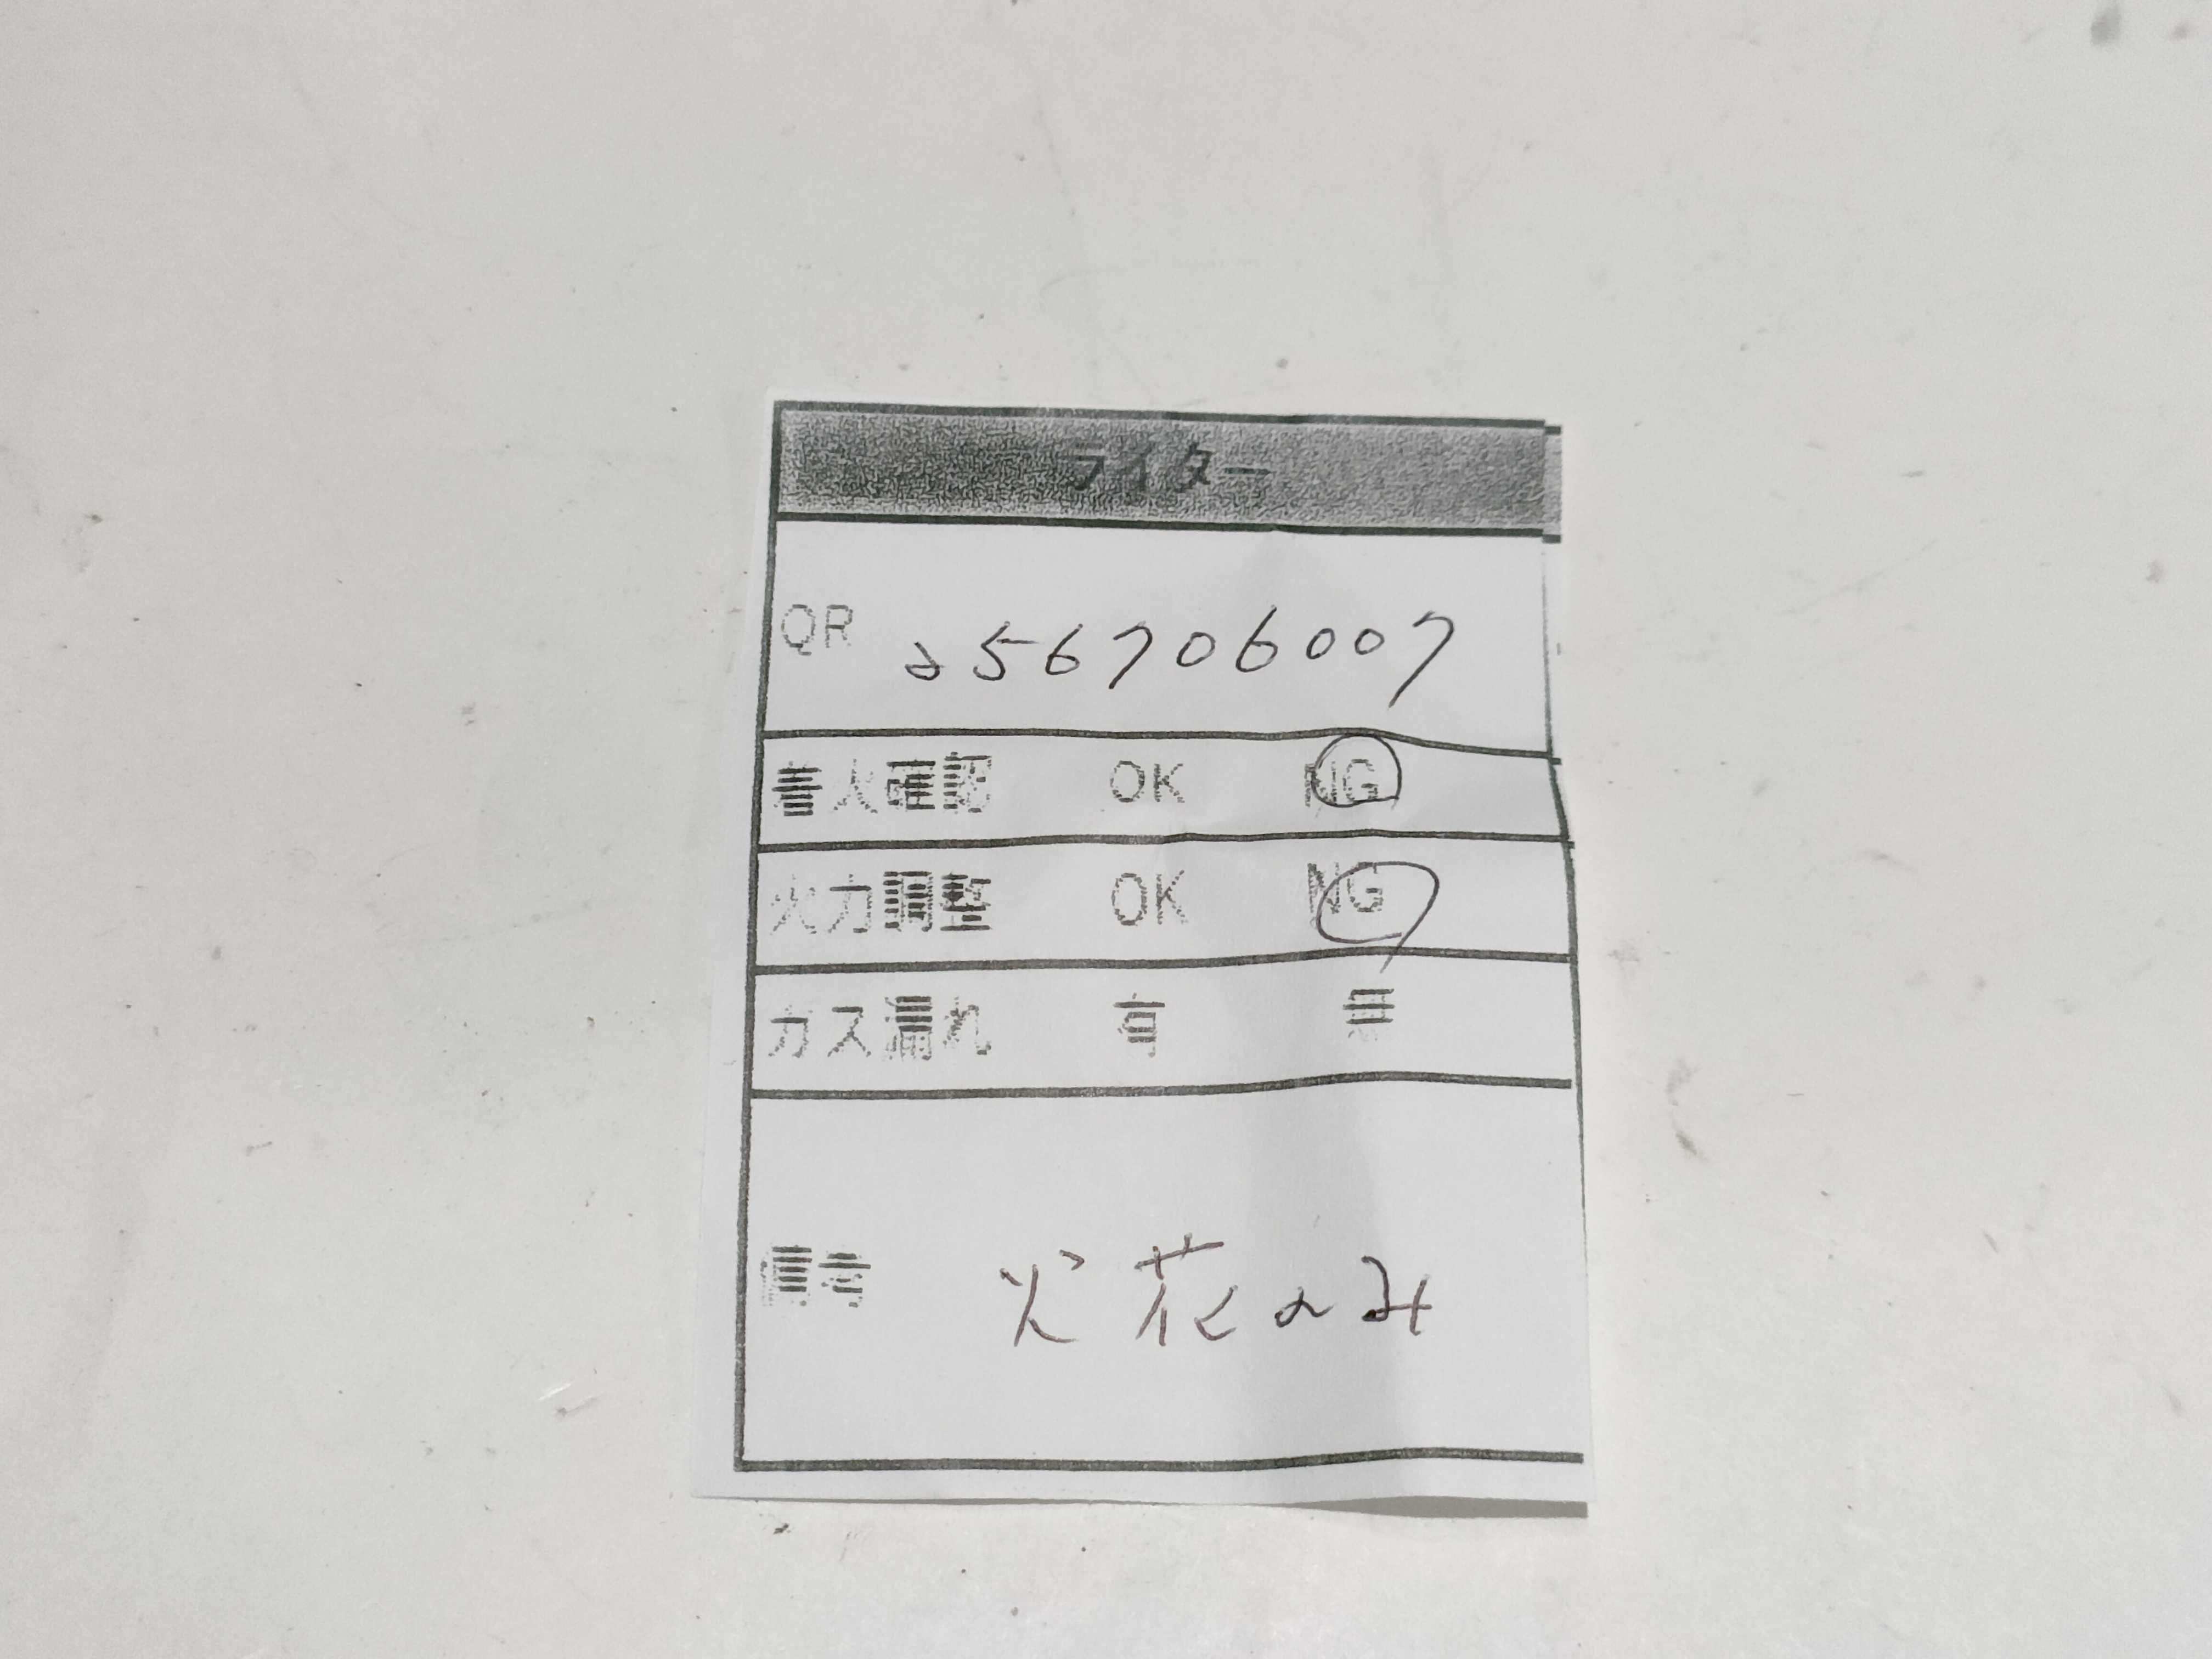 ライター
QR 256706007
着火確認 OK NG
火力調整 OK NG
ガス漏れ 有 無
備考 火花のみ